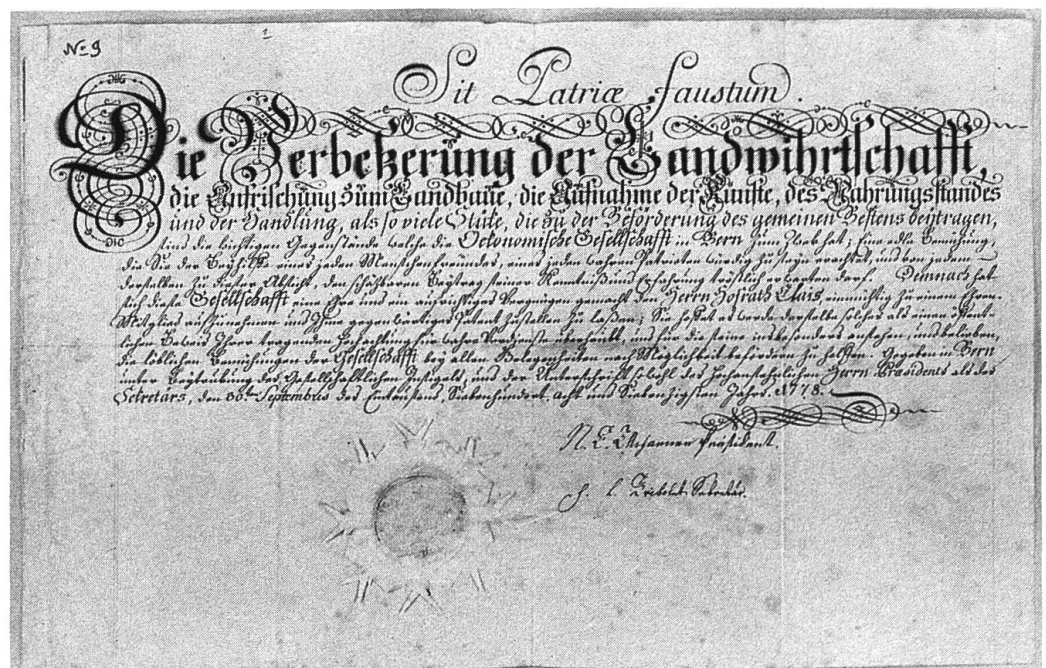 No 9
1
Sit Patriæ faustum.
Die Verbeßerung der Landwihrtschafft,
die Anfrischung zum Landbaue, die Aufnahme der Künste, des Nahrungsstandes
und der Handlung, als so viele Stüke, die zu der Beförderung des gemeinen Bestens beytragen,
sind die wichtigen Gegenstände welche die Oekonomische Gesellschafft in Bern zum Zwek hat; Eine edle Bemühung,
die Sie der Beyhülfe eines jeden Menschenfreundes, eines jeden wahren Patrioten würdig zu seyn erachtet, und von jedem
derselben zu dieser Absicht, den schätzbaren Beytrag seiner Kenntniß und Erfahrung tröstlich erwarten darf. Demnach hat
sich diese Gesellschafft eine Ehre und ein aufrichtiges Vergnügen gemacht den Herrn Hofrath Clais, einmüthig zu einem Ehren-
Mitglied aufzunehmen und Ihme gegenwärtiges Patent zustellen zu laßen; Sie hoffet es werde derselbe solches als einen öffent-
lichen Beweis Ihrer tragenden Hochachtung für wahre Verdienste und für die seine insbesonders ansehen, und belieben,
die löblichen Bemühungen der Gesellschafft bey allen Gelegenheiten nach Möglichkeit befördern zu helffen. Gegeben in Bern
unter Beydrükung des Gesellschafftlichen Insigels, und der Unterschrifft sowohl des Hochansehnlichen Herrn Præsidents als des
Secretärs, den 30ten Septembris des Eintausend, Siebenhundert, acht und Siebenzigsten Jahrs. 1778.
N. E. Tscharner Præsident.
Tribolet Secretär.